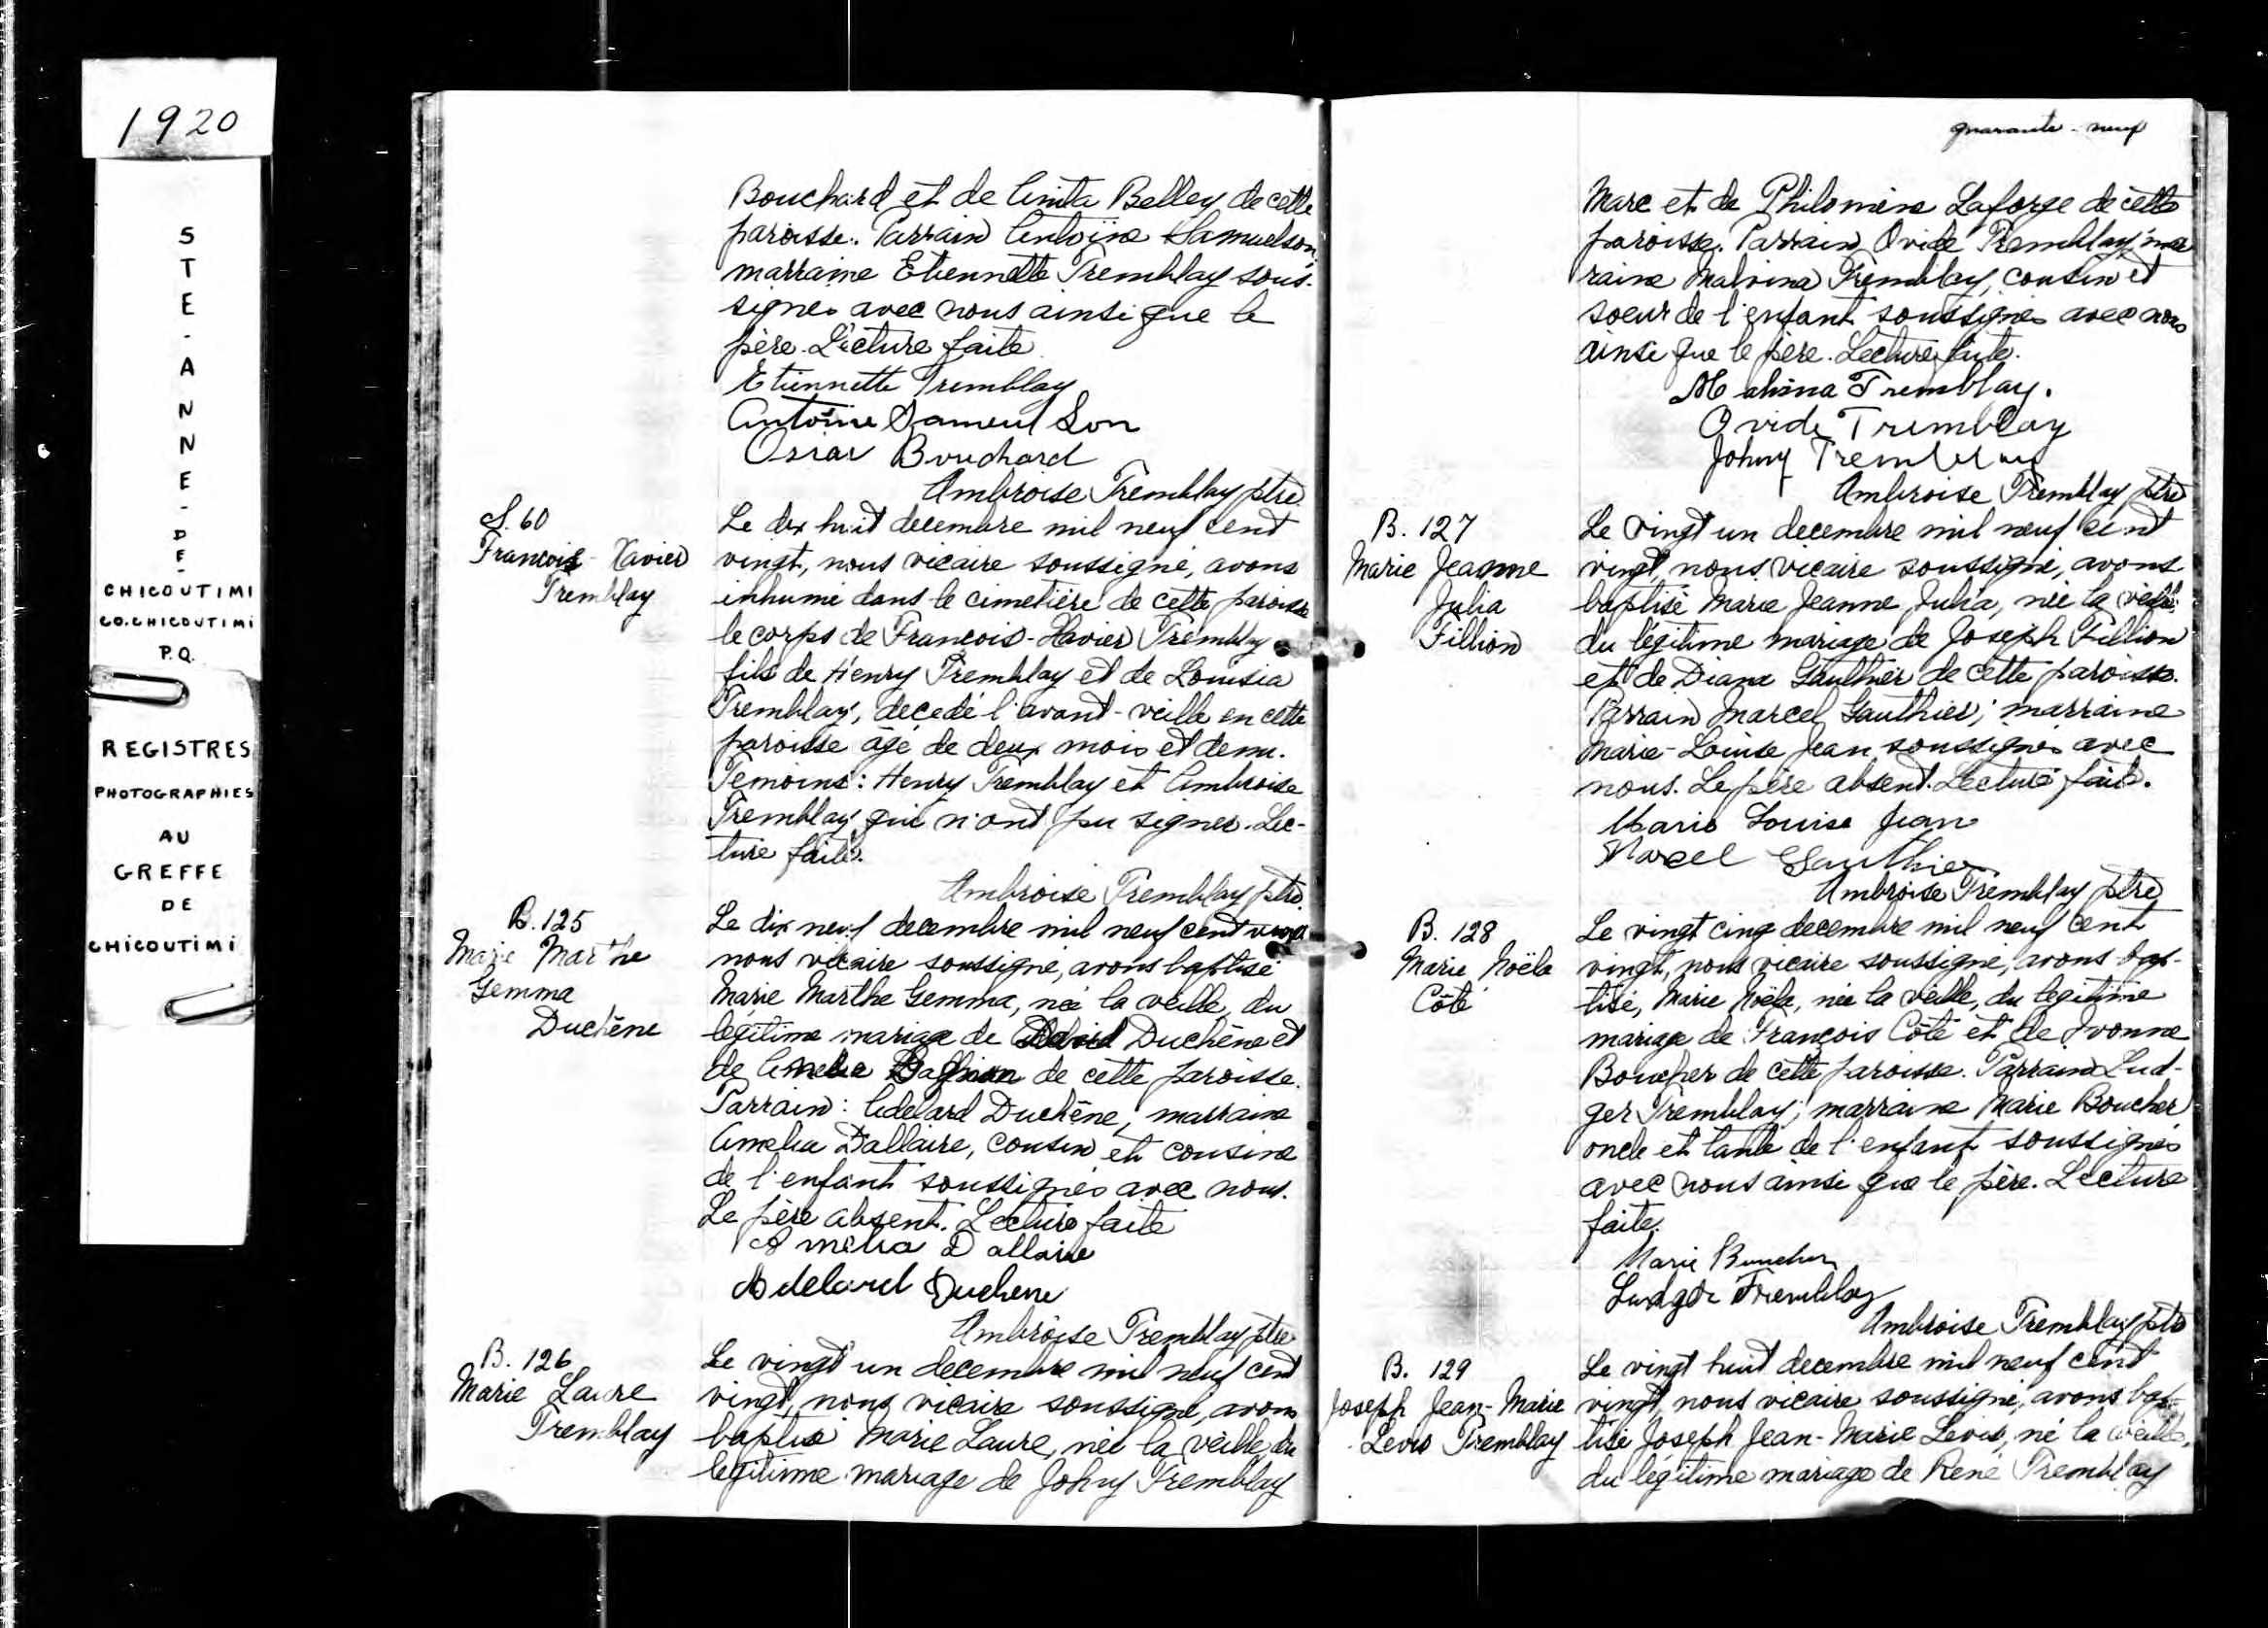 1920
STE-ANNE-DE-
CHICOUTIMI
CO. CHICOUTIMI
P.Q.
REGISTRES
PHOTOGRAPHIES
AU
GREFFE
DE
CHICOUTIMI
Bouchard et de Anita Belley de cette
paroisse. Parrain Antoine Samuelson,
marraine Etiennette Tremblay sous-
signés avec nous ainsi que le
père. Lecture faite
Etiennette Tremblay
Antoine Samuel Son
Oscar Bouchard
Ambroise Tremblay ptre
S. 60
François-Xavier
Tremblay
Le dix huit decembre mil neuf cent
vingt, nous vicaire soussigné, avons
inhumé dans le cimetière de cette paroisse
le corps de François-Xavier Tremblay
fils de Henry Tremblay et de Louisia
Tremblay, decedé l'avant-veille en cette
paroisse âgé de deux mois et demi.
Temoins: Henry Tremblay et Ambroise
Tremblay qui n'ont pu signer. Lec-
ture faite.
Ambroise Tremblay ptre
B. 125
Marie Marthe
Gemma
Duchêne
Le dix neuf decembre mil neuf cent vingt
nous vicaire soussigné, avons baptisé
Marie Marthe Gemma, née la veille, du
legitime mariage de Duchêne et
de de cette paroisse.
Parrain: Adelard Duchêne, marraine
Amelia Dallaire, cousin et cousine
de l'enfant soussignés avec nous.
Le père absent. Lecture faite
Amelia Dallaire
Adelard Duchene
Ambroise Tremblay ptre
B. 126
Marie Laure
Tremblay
Le vingt un decembre mil neuf cent
vingt, nous vicaire soussigné, avons
baptisé Marie Laure, née la veille du
legitime mariage de Johny Tremblay
quarante-neuf
Marc et de Philomène Laforge de cette
paroisse. Parrain Ovide Tremblay, mar
raine Malvina Tremblay, cousin et
soeur de l'enfant soussignés avec nous
ainsi que le père. Lecture faite.
Malvina Tremblay.
Ovide Tremblay
Johny Tremblay
Ambroise Tremblay ptre
B. 127
Marie Jeanne
Julia
Fillion
Le vingt un decembre mil neuf cent
vingt, nous vicaire soussigné, avons
baptisé Marie Jeanne Julia, née la veille
du légitime mariage de Joseph Fillion
et de Diana Gauthier de cette paroisse.
Parrain Marcel Gauthier; marraine
Marie-Louise Jean soussignés avec
nous. Le père absent. Lecture faite.
Marie Louise Jean
Marcel Gauthier
Ambroise Tremblay ptre
B. 128
Marie Noëla
Côté
Le vingt cinq decembre mil neuf cent
vingt, nous vicaire soussigné, avons bap-
tisé, Marie Noëla, née la veille, du legitime
mariage de François Côté et de Yvonne
Boucher de cette paroisse. Parrain Lud-
ger Tremblay; marraine Marie Boucher
oncle et tante de l'enfant soussignés
avec nous ainsi que le père. Lecture
faite.
Marie Boucher
Ludger Tremblay
Ambroise Tremblay ptre
B. 129
Joseph Jean-Marie
Levis Tremblay
Le vingt huit decembre mil neuf cent
vingt, nous vicaire soussigné, avons bap-
tisé Joseph Jean-Marie Levis, né la veille,
du légitime mariage de René Tremblay